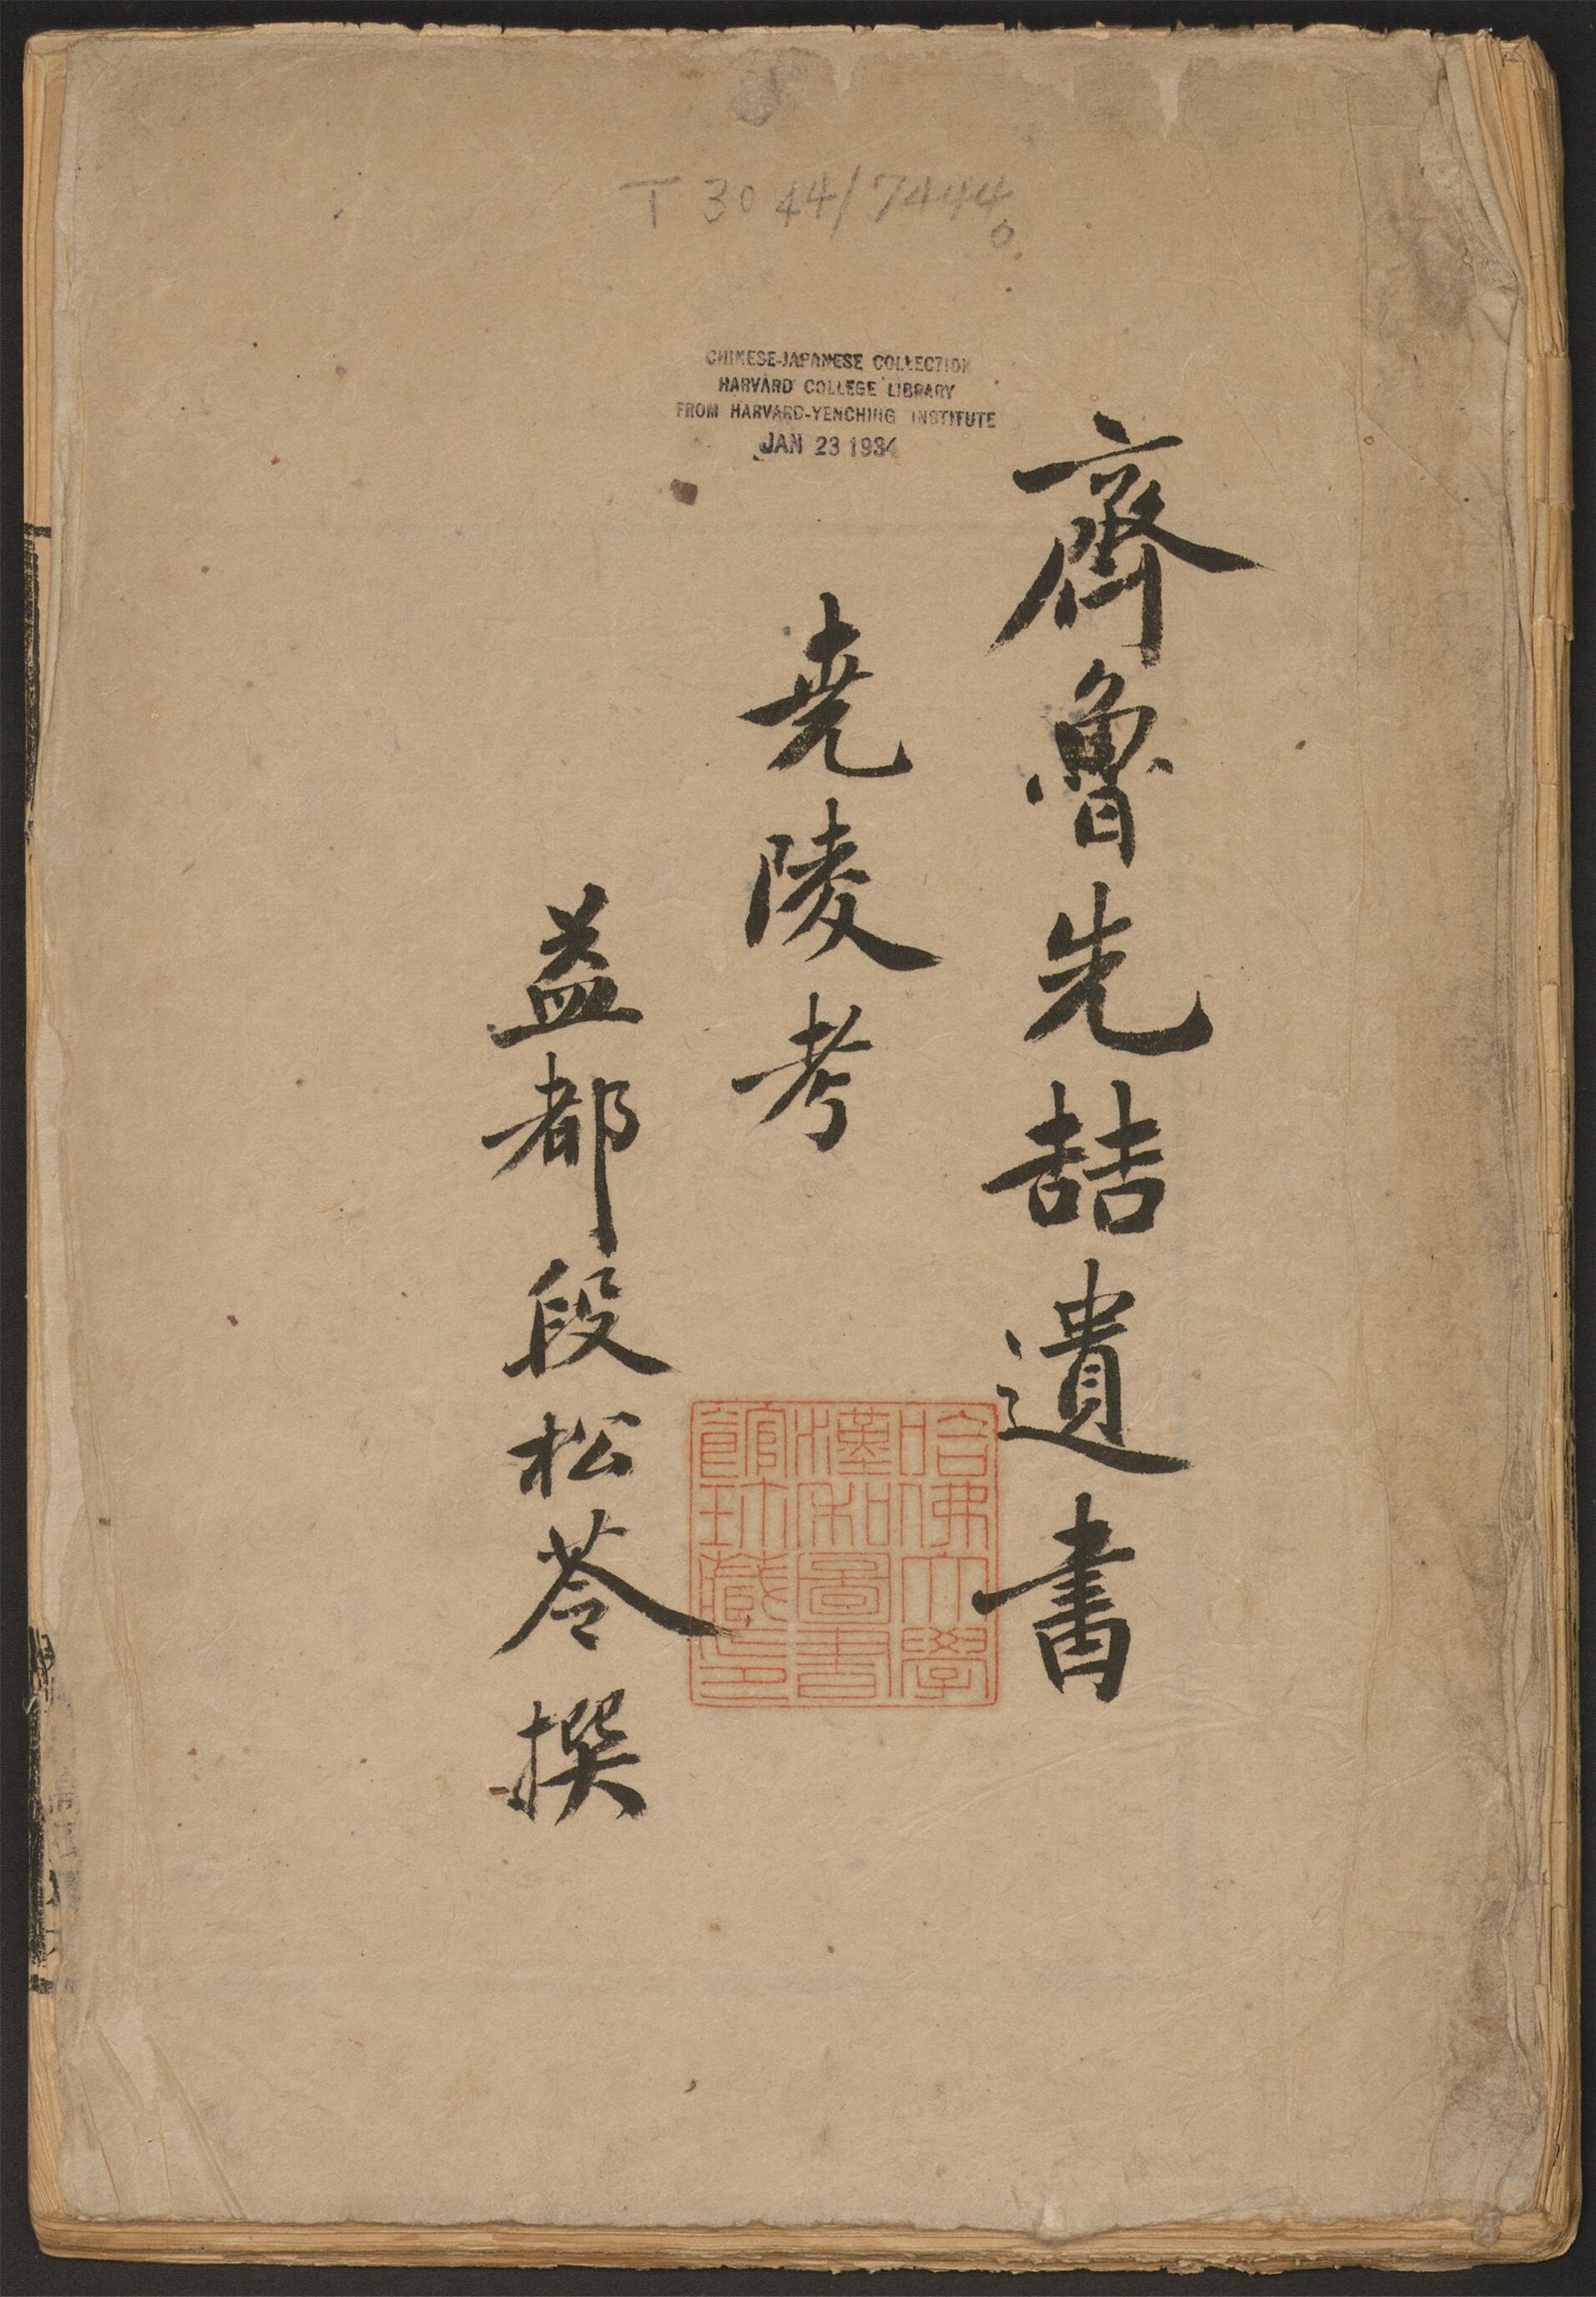 T 3044/7444
CHINESE-JAPANESE COLLECTION
HARVARD COLLEGE LIBRARY
FROM HARVARD-YENCHING INSTITUTE
JAN 23 1934
齊魯先喆遺書
尭陵考
益都段松苓撰
哈佛大學
漢和圖書
館珍藏印